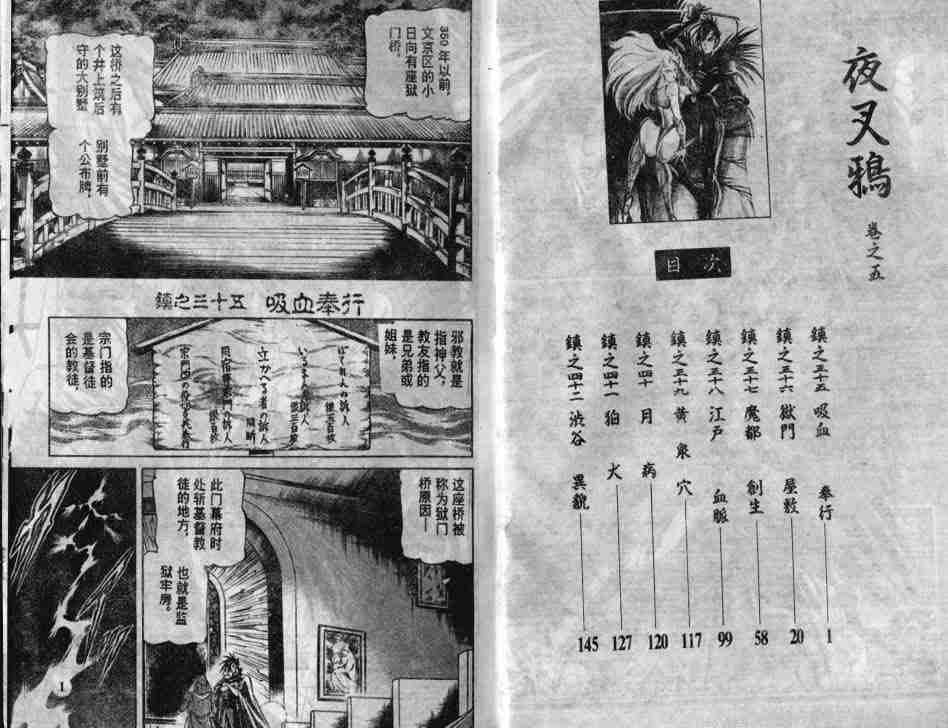 夜叉鴉
卷之五
目次
鎮之三十五 吸血奉行 1
鎮之三十六 獄門屋敷 20
鎮之三十七 魔都創生 58
鎮之三十八 江戸血脈 99
鎮之三十九 黄泉穴 117
鎮之四十 月病 120
鎮之四十一 狛犬 127
鎮之四十二 渋谷異貌 145
350年以前，
文京区的小
日向有座獄
门桥。
这桥之后有
个井上筑后
守的大别墅
别墅前有
个公布牌，
鎮之三十五 吸血奉行
邪教就是
指神父，
教友指的
是兄弟或
姐妹，
宗门指的
是基督徒
会的教徒，
这座桥被
称为獄门
桥原因—
此门幕府时
处斩基督教
徒的地方，
也就是监
獄牢房。
1